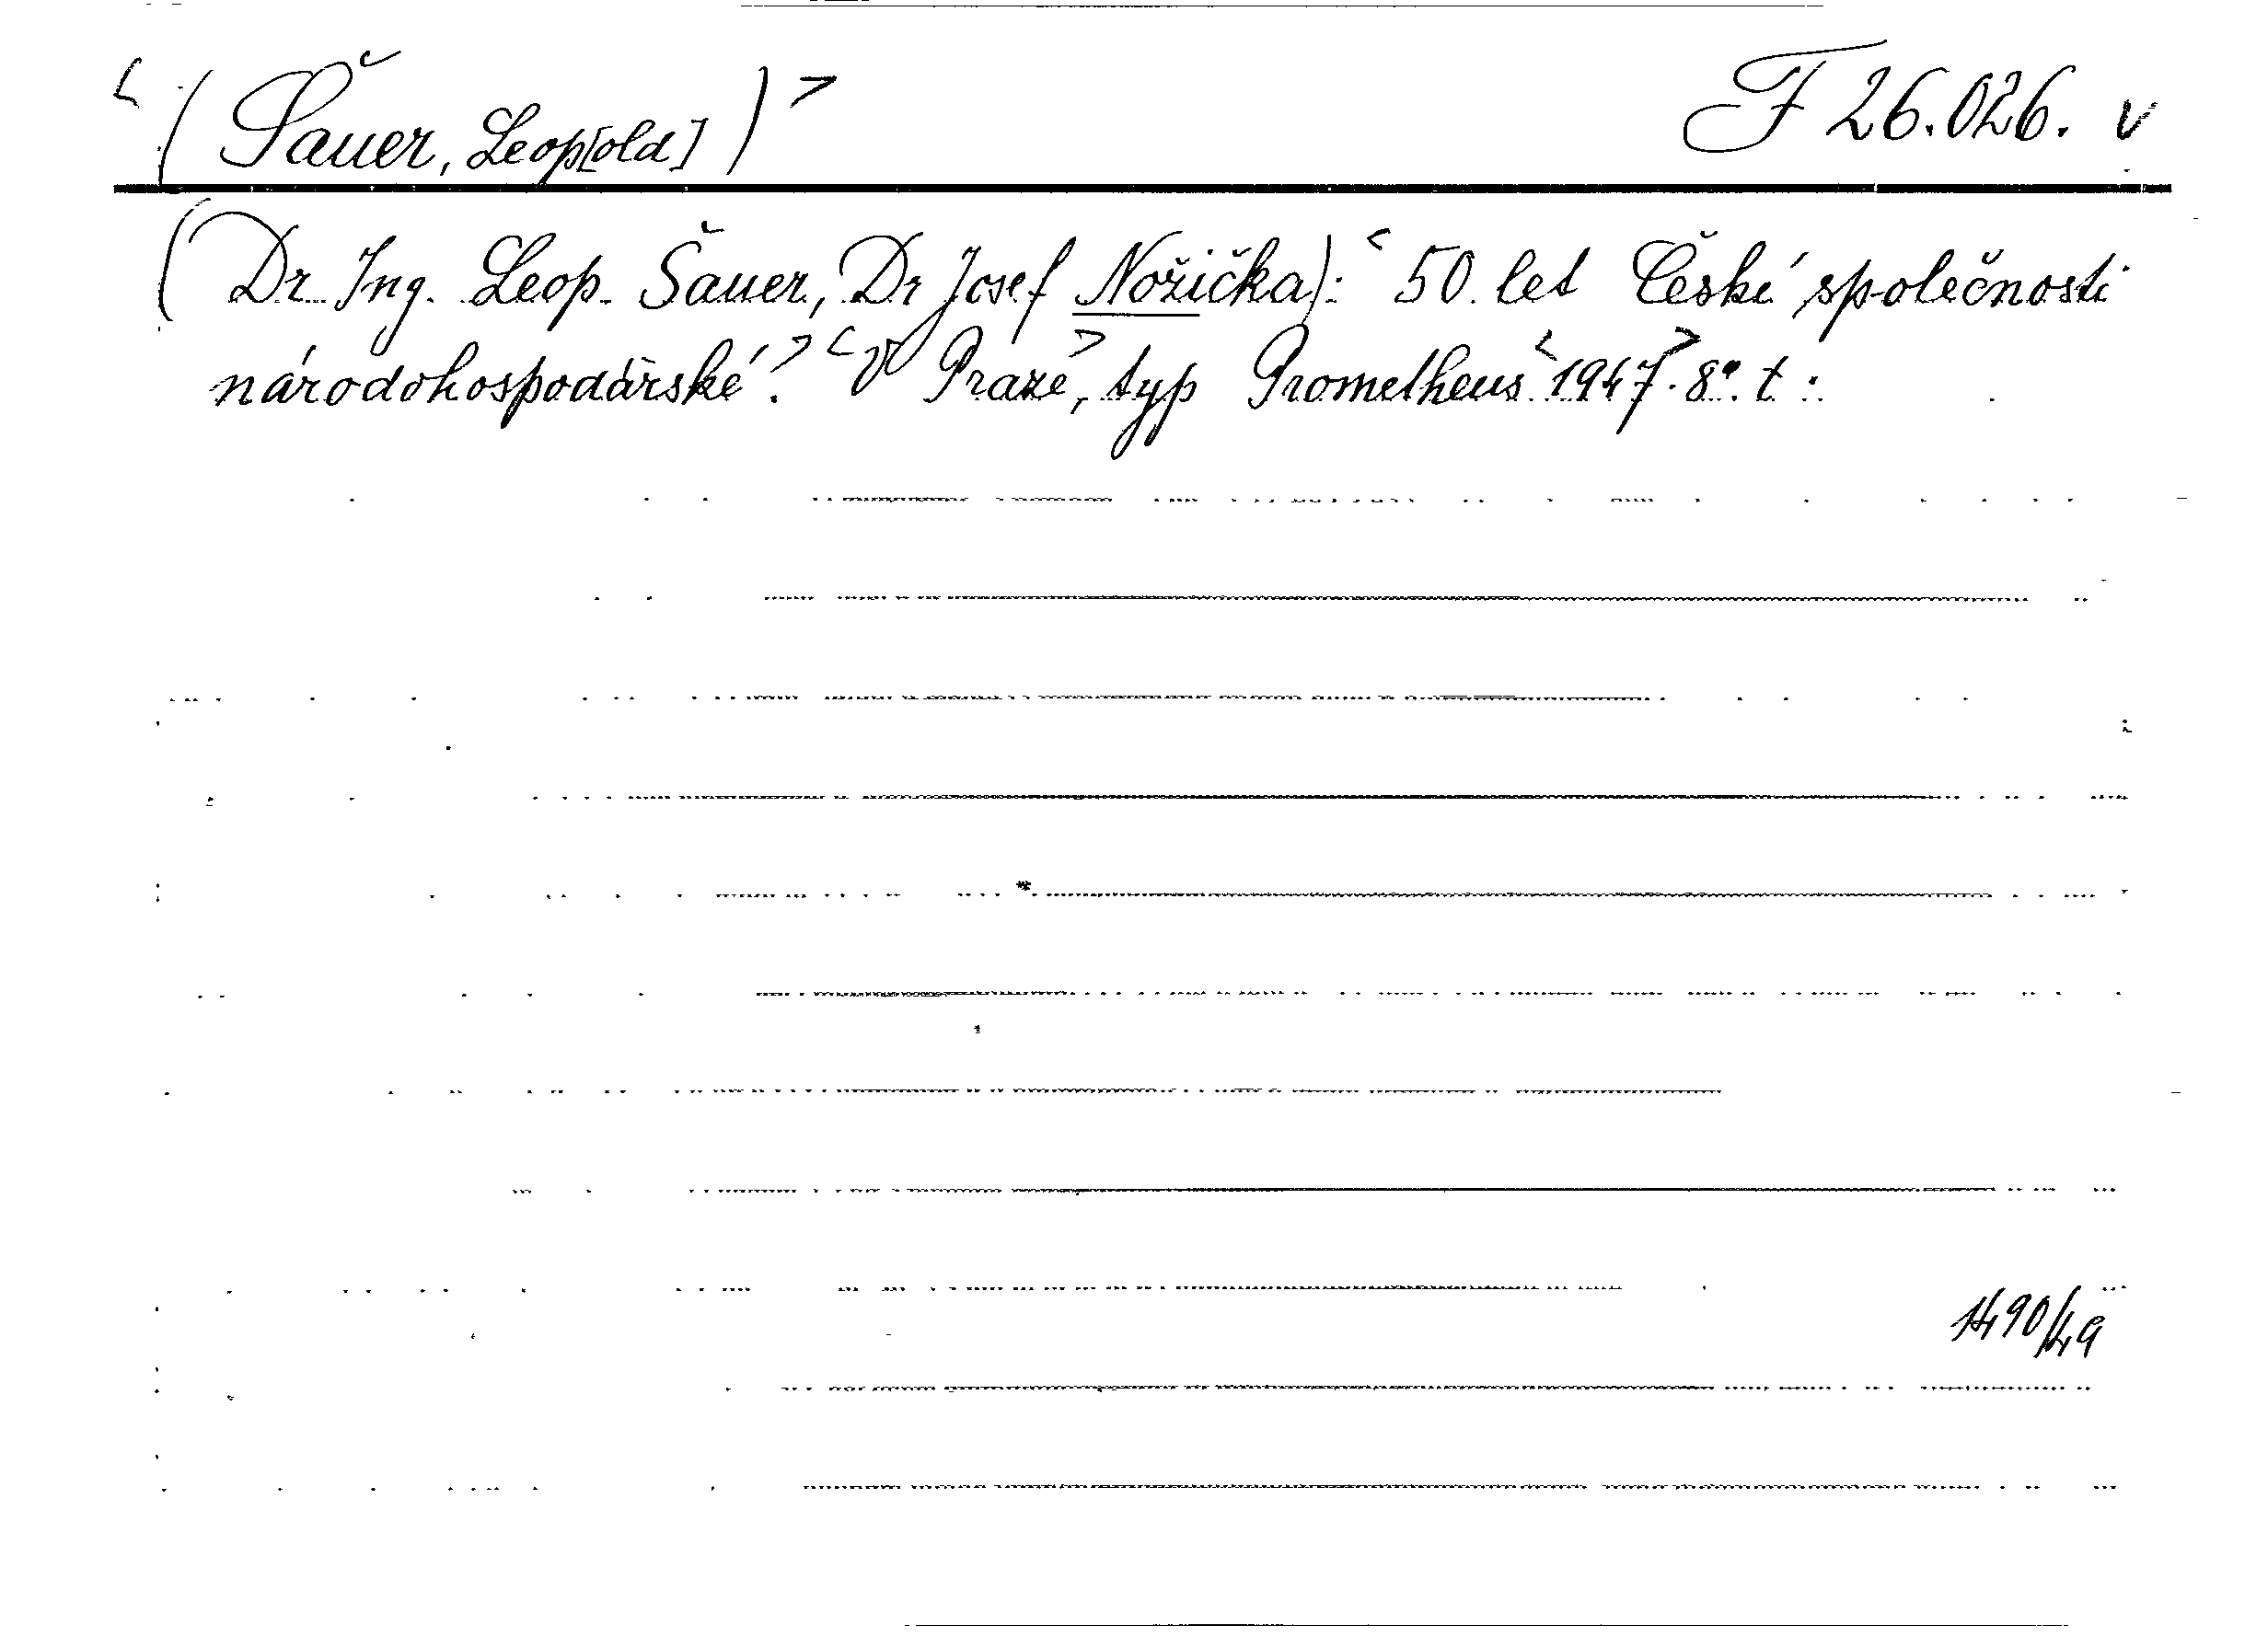 <(Šauer, Leop[old])> F 26.026. v
(Dr. Ing. Leop. Šauer, Dr Josef Nožička): <50 let České společnosti
národohospodářské.> <V Praze>, typ Prometheus <1947>. 8°. t.
1490/49